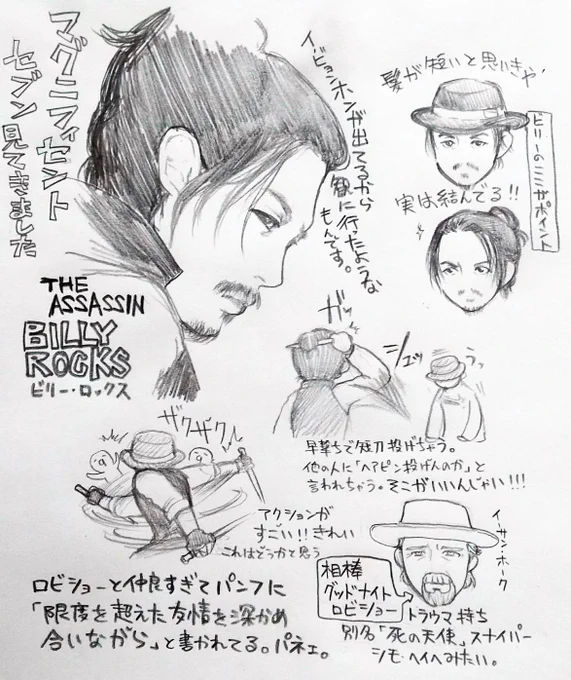 マグニフィセント
セブン見てきました
イ・ビョンホンが出てるから
観に行ったような
もんです。
髪が短いと思いきや
ビリーのここがポイント
実は結んでる!!
THE
ASSASSIN
BILLY
ROCKS
ビリー・ロックス
ガッ
シュッ
うっ
早撃ちで短刀投げちゃう。
他の人に「ヘアピン投げんのか」と
言われちゃう。そこがいいんじゃい!!!
ザクザクッ
アクションが
すごい!!きれい
これはどうかと思う
イーサン・ホーク
相棒
グッドナイト
ロビショー
トラウマ持ち
別名「死の天使」スナイパー
シモ・ヘイヘみたい。
ロビショーと仲良すぎてパンフに
「限度を超えた友情を深かめ
合いながら」と書かれてる。パネェ。